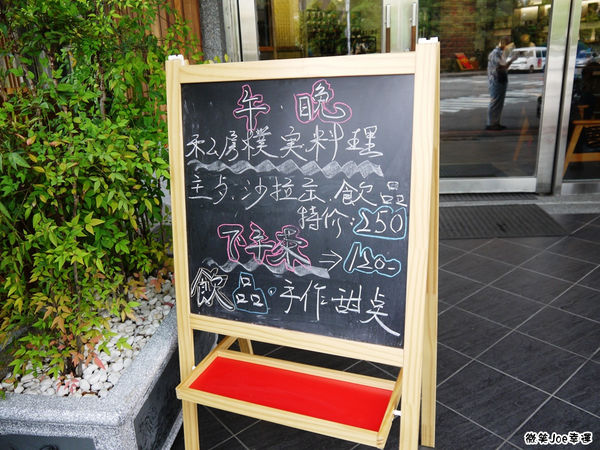 午.晚
私房樸実.料理
主点.沙拉盅.飲品
特价.250
下午茶→120-
飲品.手作甜桌
微笑Joe幸運